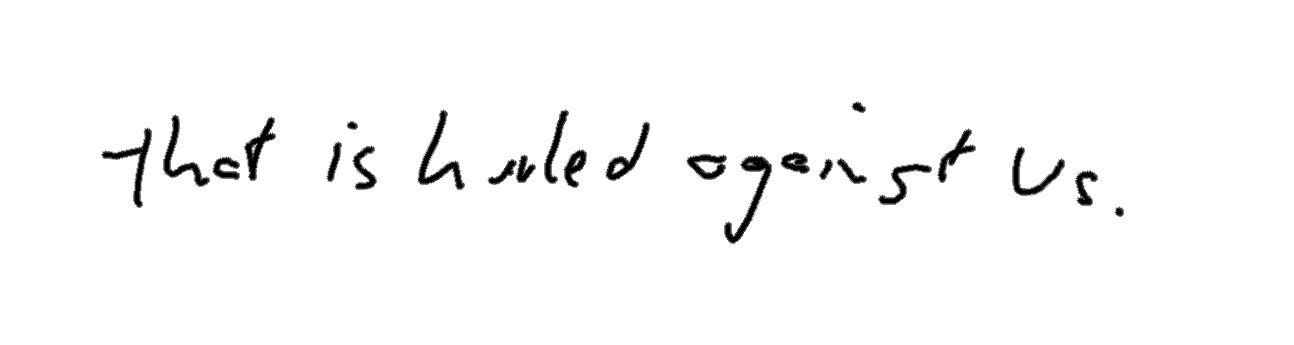 that is hurled against us.